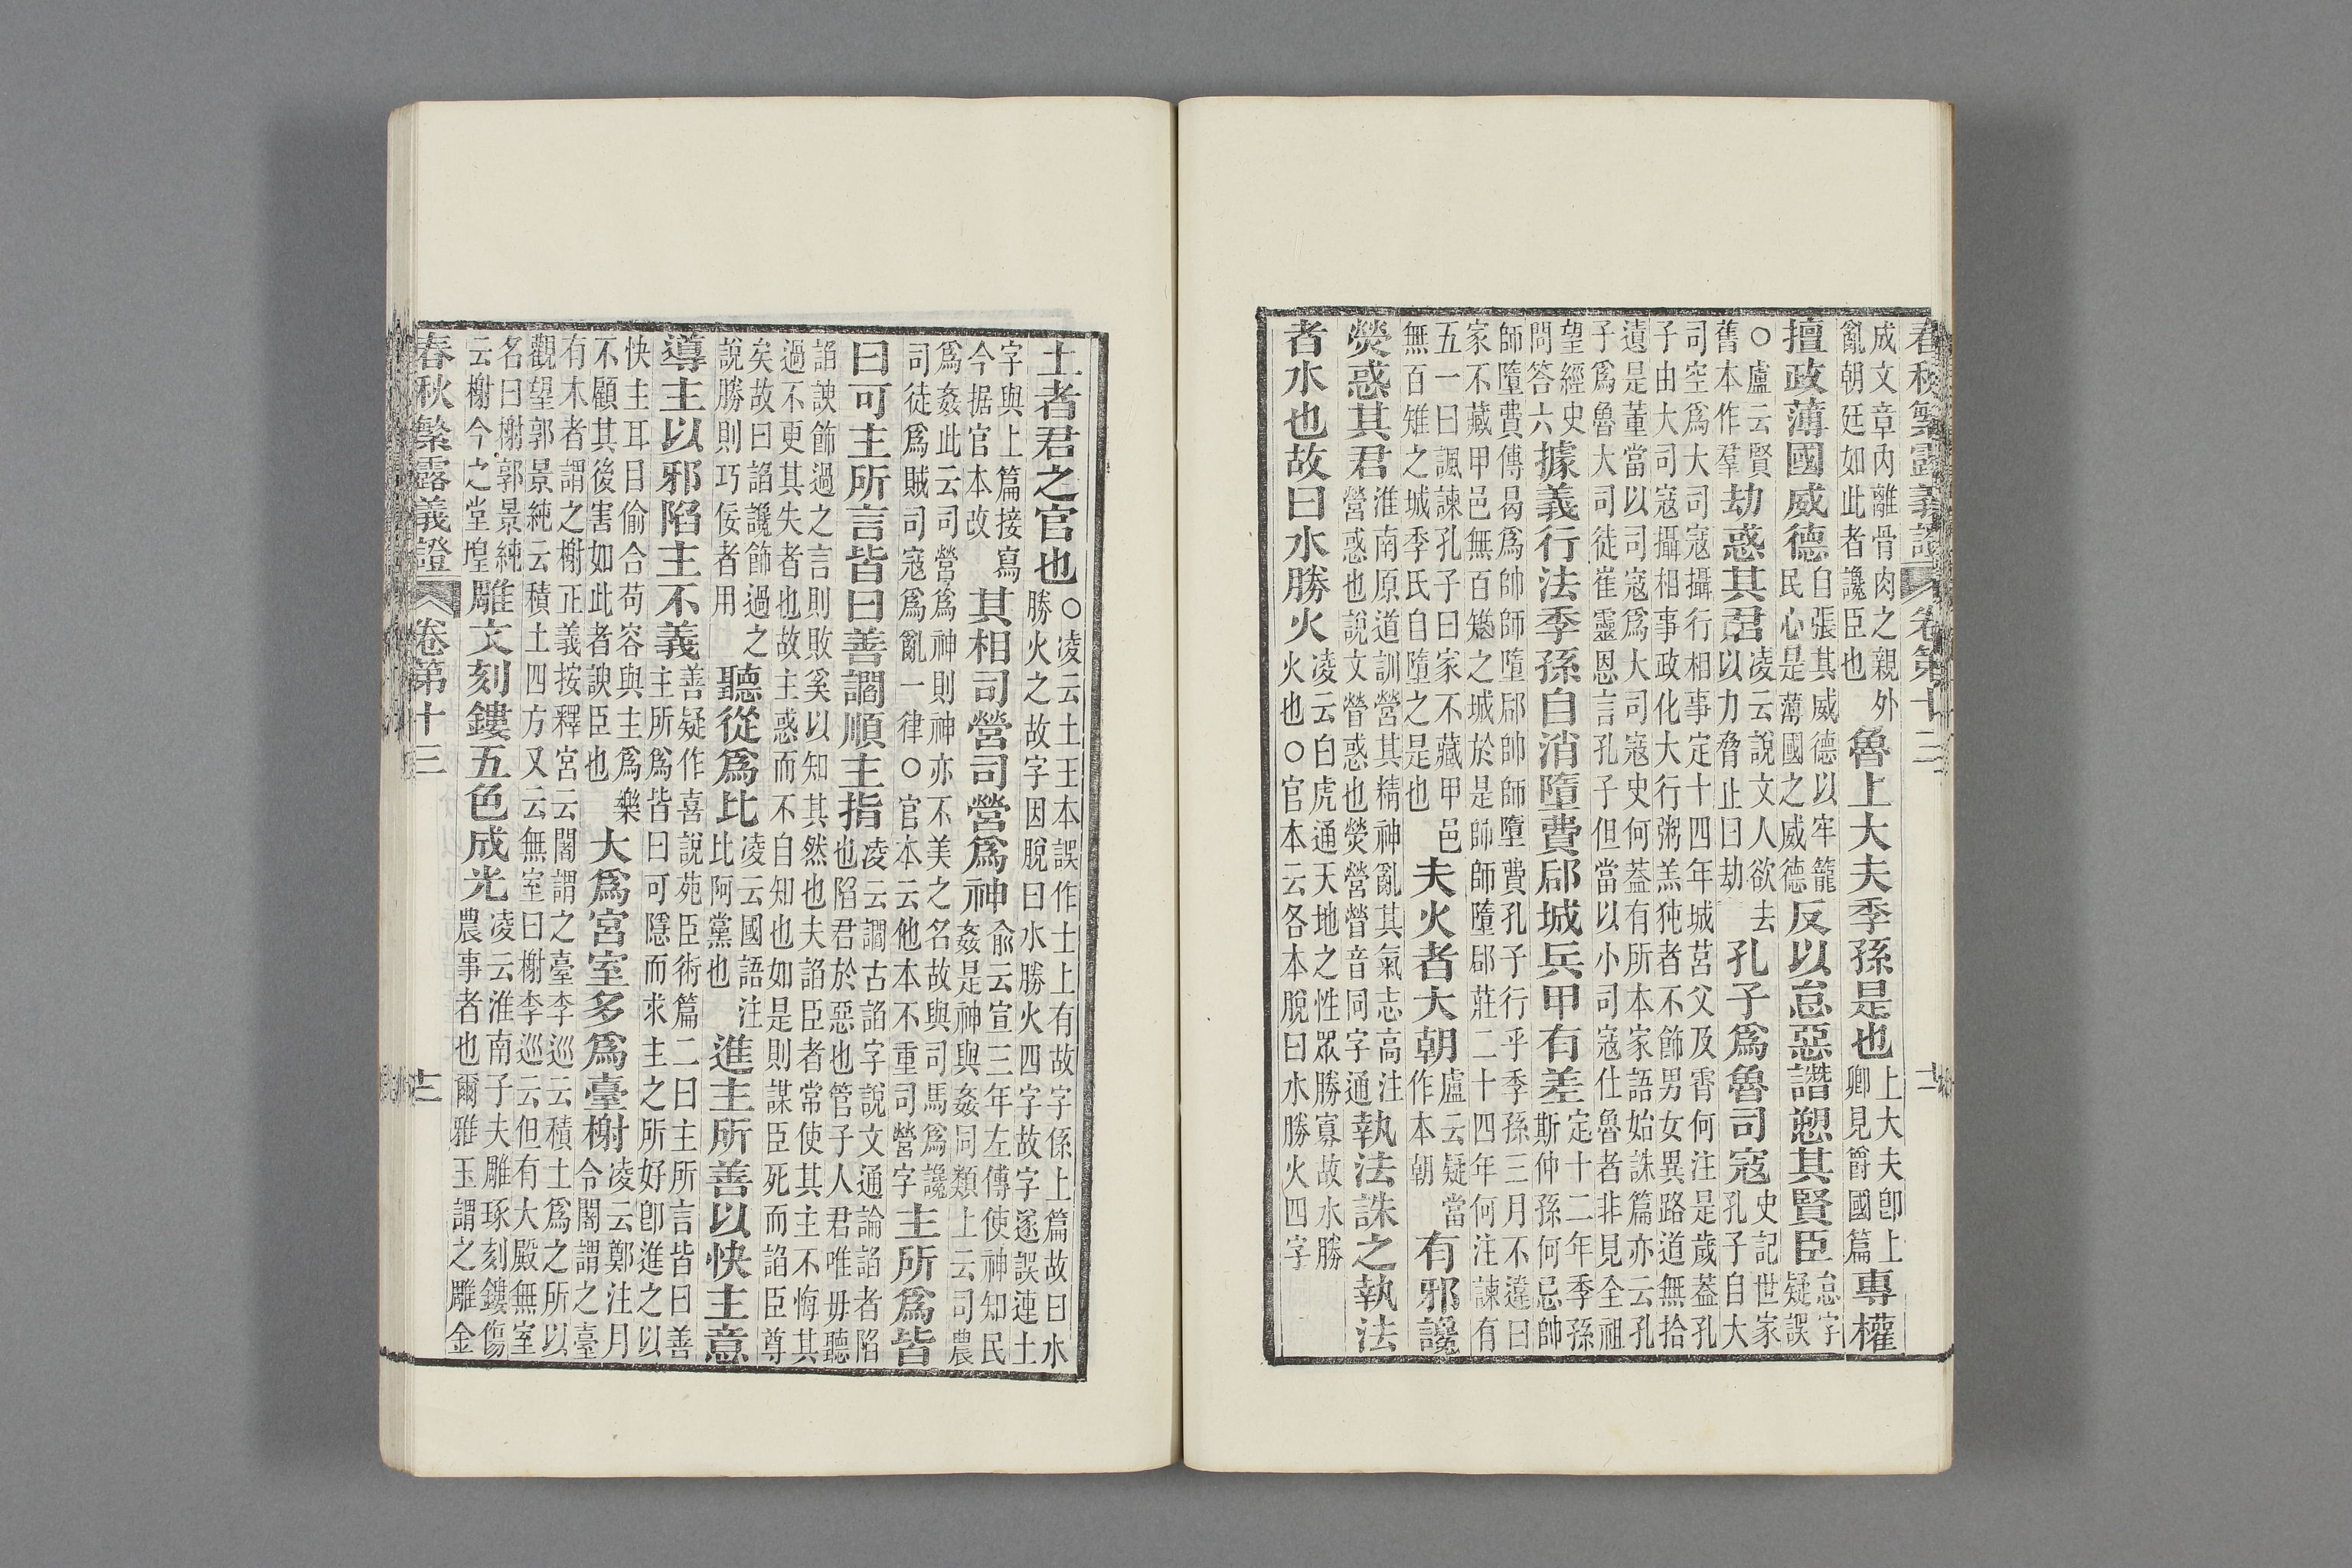 春秋繁露義證 卷第十三 十一
成文章內離骨肉之親外
亂朝廷如此者讒臣也
魯上大夫季孫是也
上大夫卽上
卿見爵國篇
專權
擅政薄國威德
自張其威德以牢籠
民心是薄國之威德
反以怠惡譖愬其賢臣
怠字
疑誤
○盧云賢
舊本作羣
劫惑其君
凌云說文人欲去
以力脅止曰劫
孔子爲魯司寇
史記世家
孔子自大
司空爲大司寇攝行相事定十四年城莒父及霄何注是歲蓋孔
子由大司寇攝相事政化大行粥羔㹠者不飾男女異路道無拾
遺是董當以司寇爲大司寇史何蓋有所本家語始誅篇亦云孔
子爲魯大司徒崔靈恩言孔子但當以小司寇仕魯者非見全祖
望經史
問答六
據義行法季孫自消墮費郈城兵甲有差
定十二年季孫
斯仲孫何忌帥
師墮費傳曷爲帥師墮郈帥師墮費孔子行乎季孫三月不違曰
家不藏甲邑無百雉之城於是師師墮郈莊二十四年何注諫有
五一曰諷諫孔子曰家不藏甲邑
無百雉之城季氏自墮之是也
夫火者大朝
盧云疑當
作本朝
有邪讒
熒惑其君
淮南原道訓營其精神亂其氣志高注
營惑也說文謍惑也熒營謍音同字通
執法誅之執法
者水也故曰水勝火
凌云白虎通天地之性眾勝寡故水勝
火也○官本云各本脫曰水勝火四字
土者君之官也
○凌云土王本誤作士上有故字係上篇故曰水
勝火之故字因脫曰水勝火四字故字遂誤連土
字與上篇接寫
今据官本改
其相司營司營爲神
俞云宣三年左傳使神知民
姦是神與姦同類上云司農
爲姦此云司營爲神則神亦不美之名故與司馬爲讒
司徒爲賊司寇爲亂一律○官本云他本不重司營字
主所爲皆
曰可主所言皆曰善讇順主指
凌云讇古諂字說文通論諂者陷
也陷君於惡也管子人君唯毋聽
諂諛飾過之言則敗奚以知其然也夫諂臣者常使其主不悔其
過不更其失者也故主惑而不自知也如是則謀臣死而諂臣尊
矣故曰諂讒飾過之
說勝則巧佞者用
聽從爲比
凌云國語注
比阿黨也
進主所善以快主意
導主以邪陷主不義
善疑作喜說苑臣術篇二曰主所言皆曰善
主所爲皆曰可隱而求主之所好卽進之以
快主耳目偷合苟容與主爲樂
不顧其後害如此者諛臣也
大爲宮室多爲臺榭
凌云鄭注月
令闍謂之臺
有木者謂之榭正義按釋宮云闍謂之臺李巡云積土爲之所以
觀望郭景純云積土四方又云無室曰榭李巡云但有大殿無室
名曰榭郭景純
云榭今之堂堭
雕文刻鏤五色成光
凌云淮南子夫雕琢刻鏤傷
農事者也爾雅玉謂之雕金
春秋繁露義證 卷第十三 十二